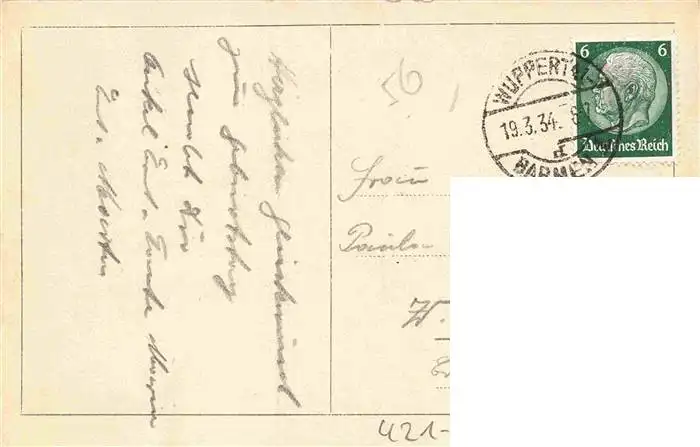 Herzlichen Glückwunsch
zum Geburtstag
sendet Dir
Onkel Ernst u. Tante Maria
56
6 6
Deutsches Reich
WUPPERTAL-
19.3.34.
d
BARMEN
Frau
W.
421-